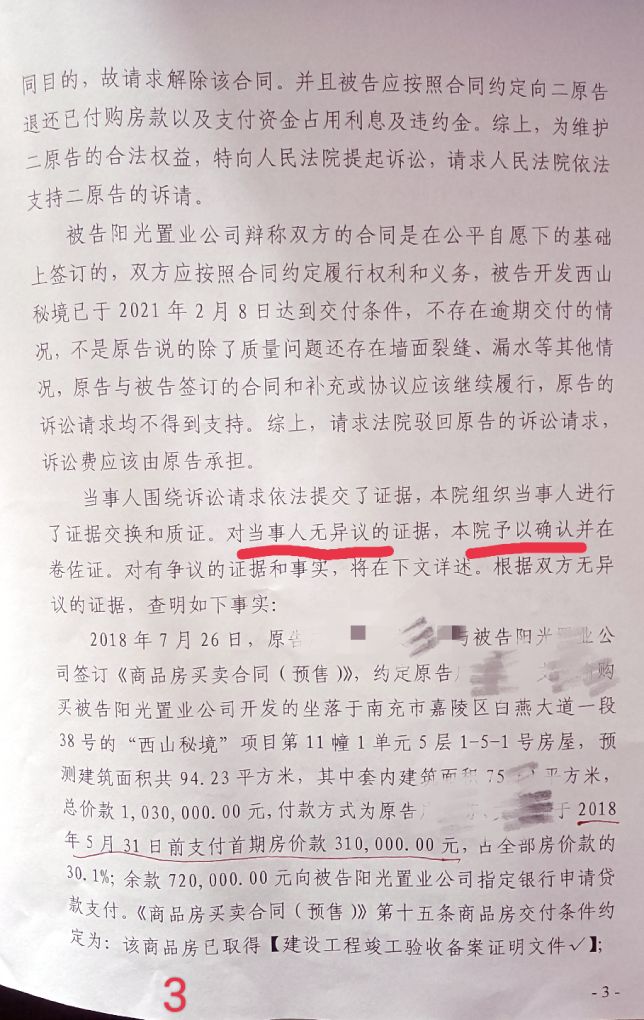 同目的，故请求解除该合同。并且被告应按照合同约定向二原告
退还已付购房款以及支付资金占用利息及违约金。综上，为维护
二原告的合法权益，特向人民法院提起诉讼，请求人民法院依法
支持二原告的诉请。
被告阳光置业公司辩称双方的合同是在公平自愿下的基础
上签订的，双方应按照合同约定履行权利和义务，被告开发西山
秘境已于 2021 年 2 月 8 日达到交付条件，不存在逾期交付的情
况，不是原告说的除了质量问题还存在墙面裂缝、漏水等其他情
况，原告与被告签订的合同和补充或协议应该继续履行，原告的
诉讼请求均不得到支持。综上，请求法院驳回原告的诉讼请求，
诉讼费应该由原告承担。
当事人围绕诉讼请求依法提交了证据，本院组织当事人进行
了证据交换和质证。对当事人无异议的证据，本院予以确认并在
卷佐证。对有争议的证据和事实，将在下文详述。根据双方无异
议的证据，查明如下事实：
2018 年 7 月 26 日，原告 与被告阳光置业公
司签订《商品房买卖合同（预售）》，约定原告 购
买被告阳光置业公司开发的坐落于南充市嘉陵区白燕大道一段
38 号的“西山秘境”项目第 11 幢 1 单元 5 层 1-5-1 号房屋，预
测建筑面积共 94.23 平方米，其中套内建筑面积 75 平方米，
总价款 1,030,000.00 元，付款方式为原告 于 2018
年 5 月 31 日前支付首期房价款 310,000.00 元，占全部房价款的
30.1%；余款 720,000.00 元向被告阳光置业公司指定银行申请贷
款支付。《商品房买卖合同（预售）》第十五条商品房交付条件约
定为：该商品房已取得【建设工程竣工验收备案证明文件√】；
3
- 3 -